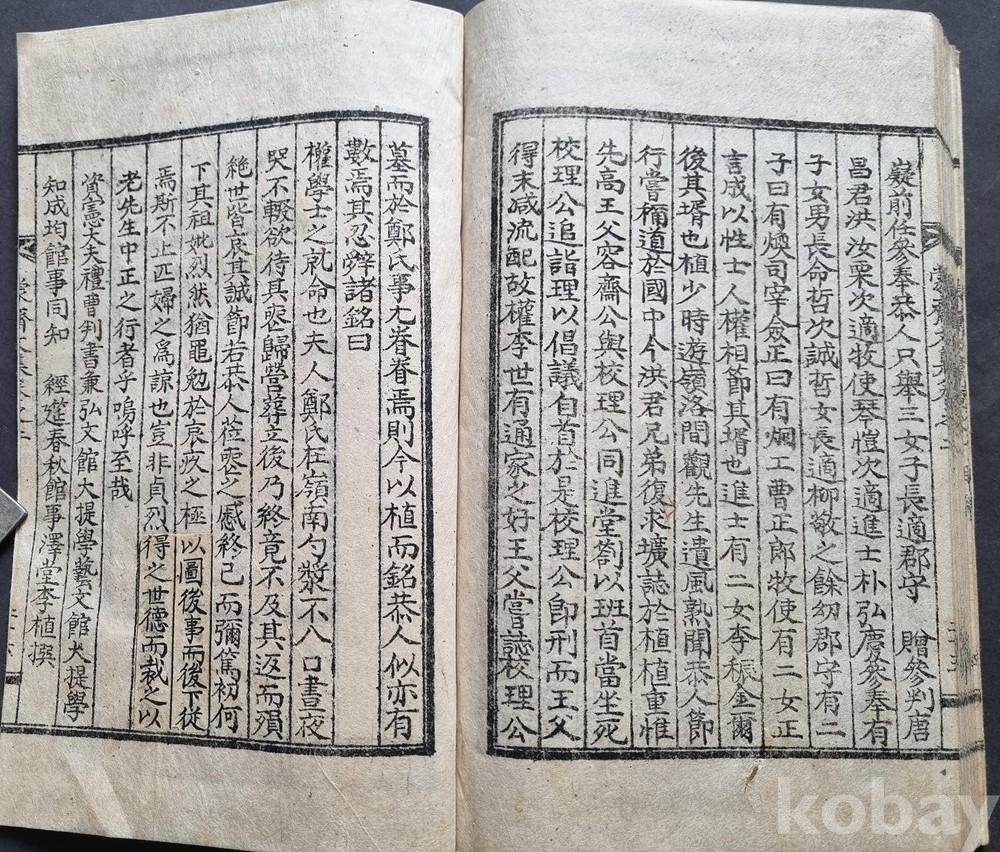 嶷前任參奉恭人只舉三女子長適郡守　贈參判唐
昌君洪汝栗次適牧使琴愷次適進士朴弘慶參奉有
子女男長命哲次誠哲女長適柳敬之餘幼郡守有二
子曰有煥司宰僉正曰有烱工曹正郎牧使有二女正
言成以性士人權相節其壻也進士有二女李穮金爾
後其壻也植少時遊嶺洛間觀先生遺風熟聞恭人節
行嘗禰道於國中今洪君兄弟復求壙誌於植植重惟
先高王父容齋公與校理公同進堂劄以班首當坐死
校理公追詣理以倡議自首於是校理公卽刑而王父
得末减流配故權李世有通家之好王父嘗誌校理公
墓而於鄭氏事尤眷眷焉則今以植而銘恭人似亦有
數焉其忍辤諸銘曰
權學士之就命也夫人鄭氏在嶺南勺漿不入口晝夜
哭不輟欲待其㐮歸營葬立後乃終竟不及其返而殞
絶世皆哀其誠節若恭人莅喪之慼終己而彌篤初何
下其祖妣烈然猶黽勉於哀疚之極以圖後事而後下從
焉斯不止匹婦之爲諒也豈非貞烈得之世德而裁之以
老先生中正之行者乎嗚呼至哉
資憲大夫禮曹判書兼弘文館大提學藝文館大提學
知成均館事同知　經筵春秋館事澤堂李植撰